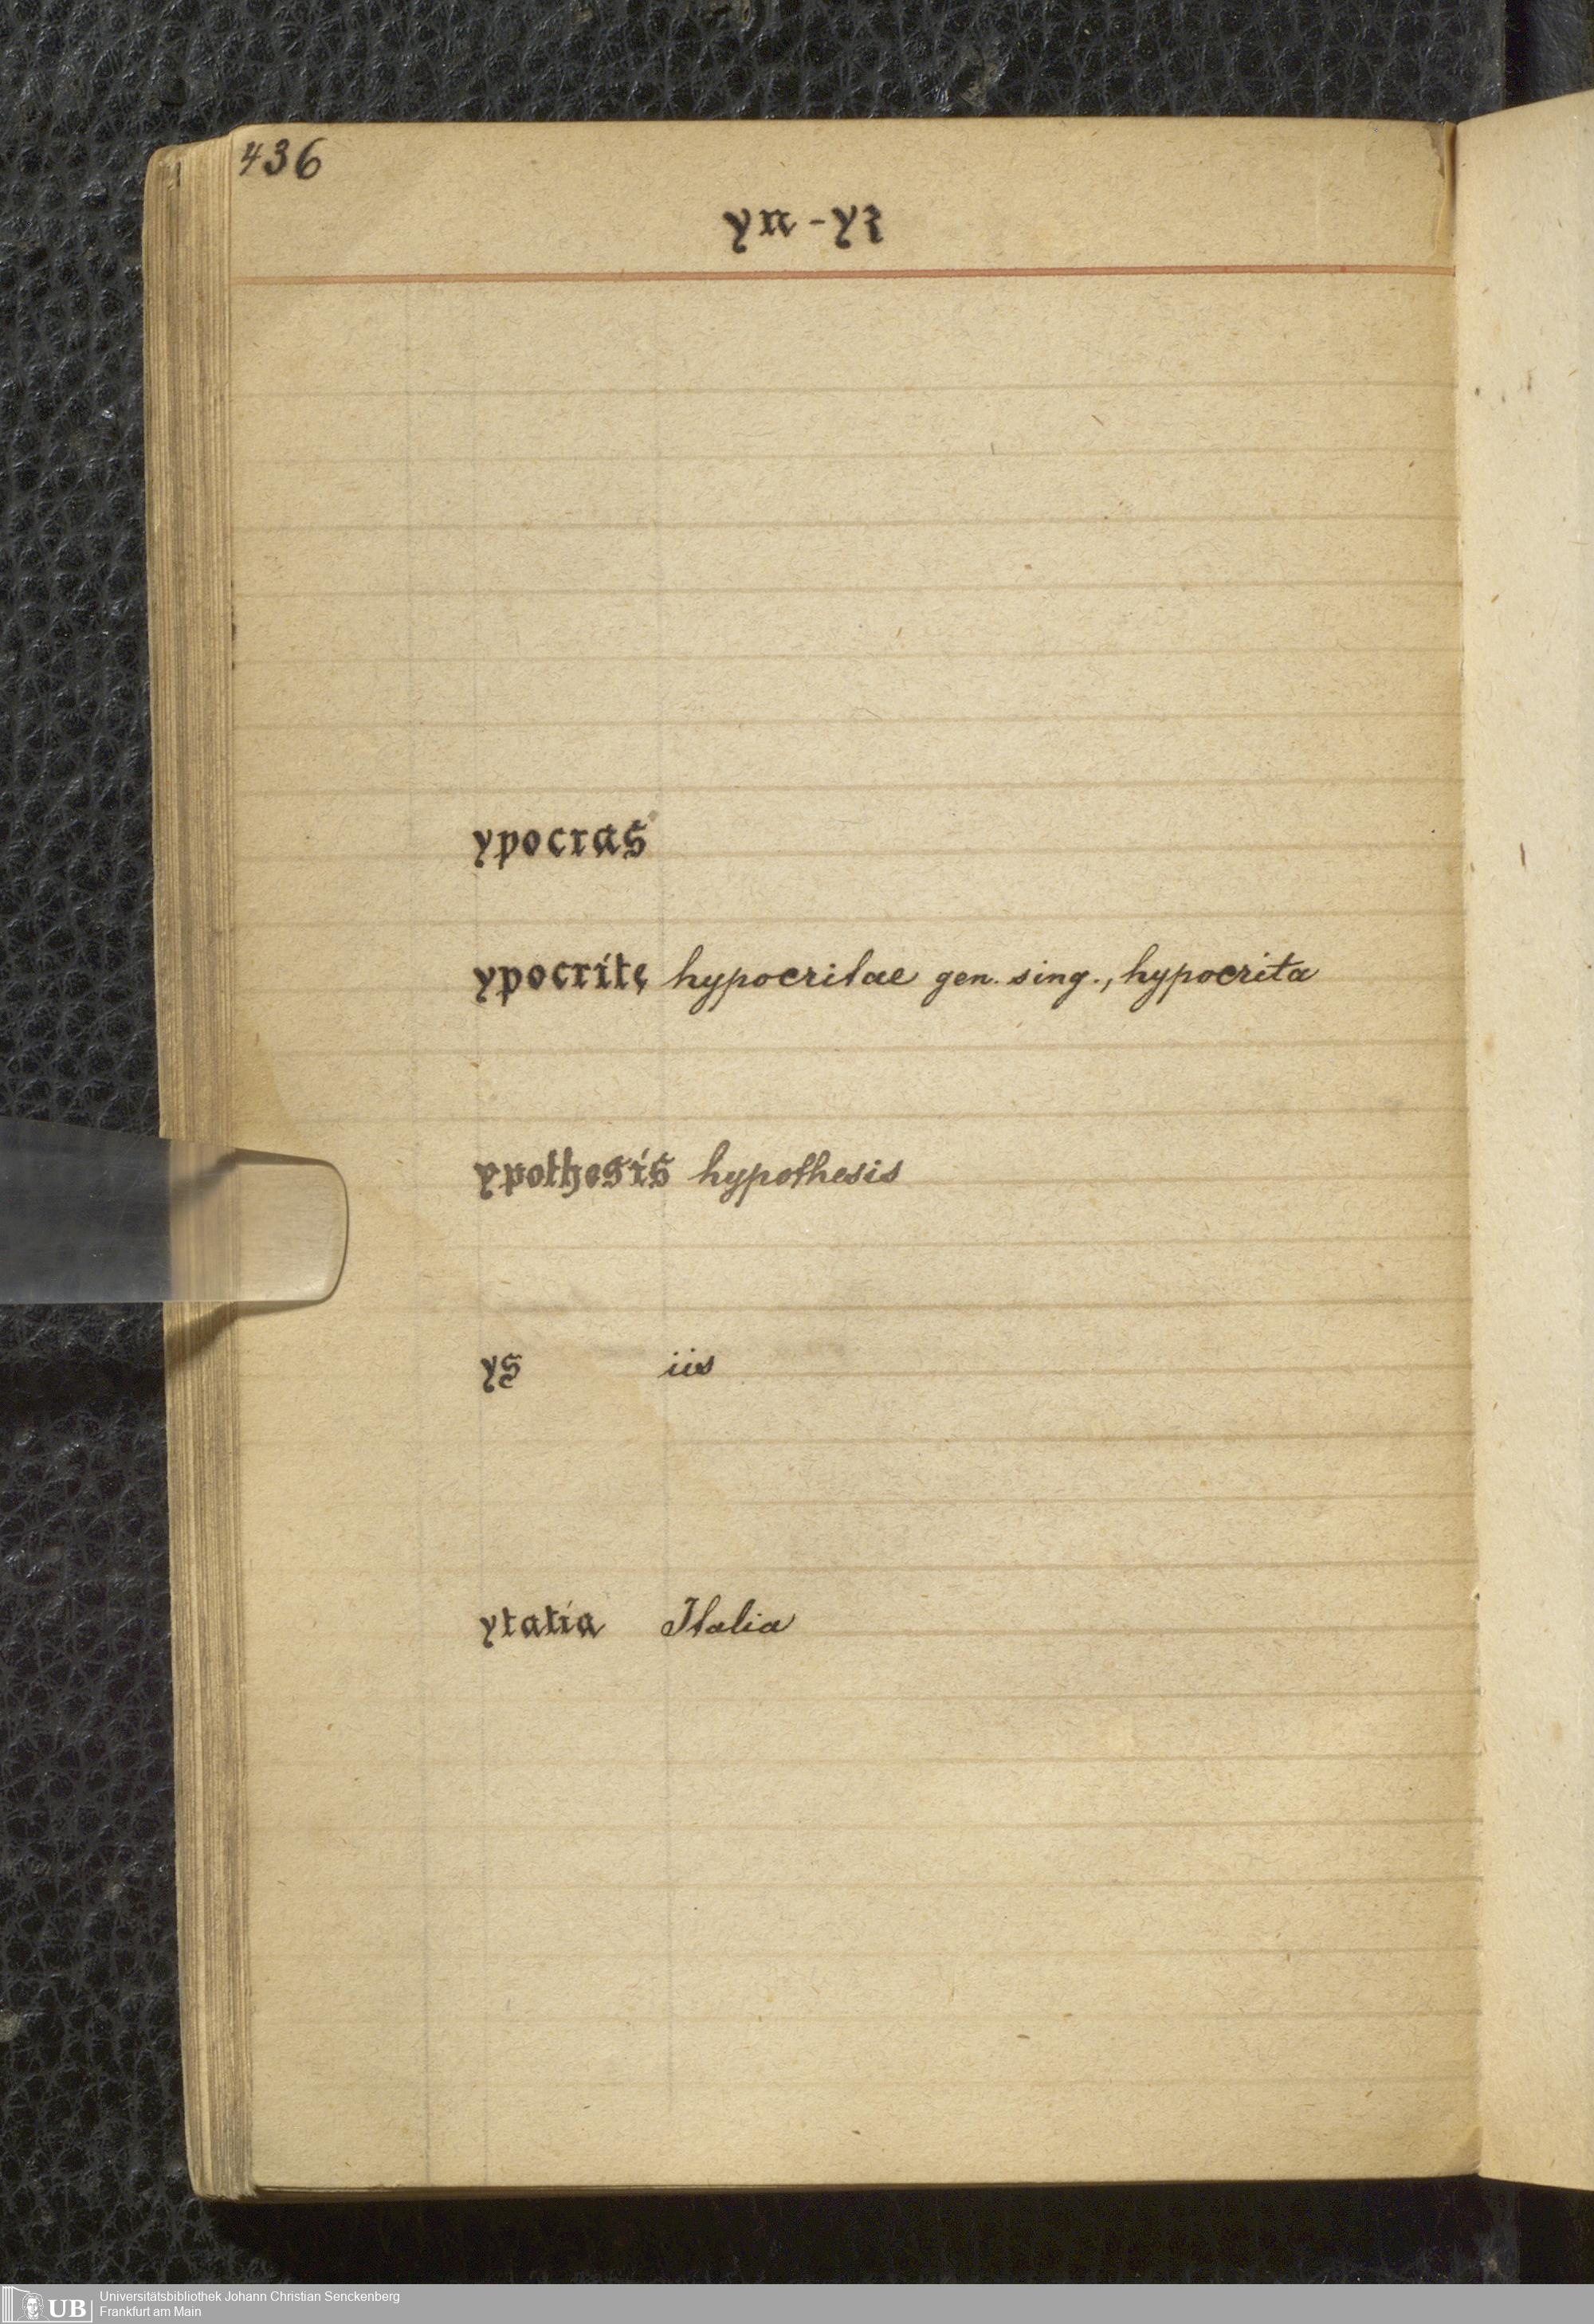 436
yn - yz
ypocras
ypocritę hypocritae gen. sing., hypocrita
ypothesis hypothesis
ys iis
ytalia Italia
UB Universitätsbibliothek Johann Christian Senckenberg
Frankfurt am Main